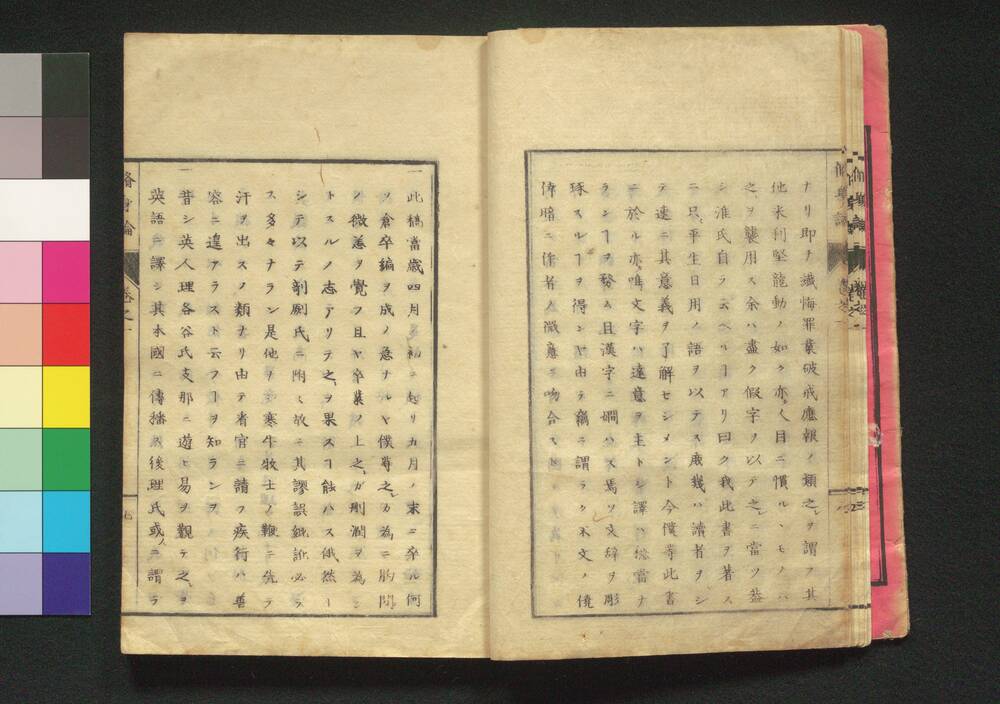 ナリ即チ懺悔罪業破戒應報ノ類之ヲ謂フ其
他米利堅龍動ノ如ク亦人目ニ慣ルヽモノハ
之ヲ襲用ス余ハ盡ク假字ヲ以テ之ニ當ツ蓋
シ淮氏自ラ云ヘルヿアリ曰ク我此書ヲ著ス
ニ只平生日用ノ語ヲ以テス庶幾ハ讀者ヲシ
テ速ニ其意義ヲ了解セシメント今僕等此書
ニ於ル亦唯文字ハ達意ヲ主トシ譯ハ穏當ナ
ランヿヲ務ム且漢字ニ嫺ハス焉ソ文辞ヲ彫
琢スルヿヲ得ンヤ由テ竊ニ謂ラク末文ノ僥
倖暗ニ作者ノ微意ニ吻合スト
一此稿當歳四月ノ初ニ起リ九月ノ末ニ卒ル何
ソ倉卒編ヲ成ノ急ナルヤ僕等之カ為ニ
シ微恙ヲ覺フ且ヤ卒業ノ上之カ刪潤ヲ為ン
トスルノ志アリテ之ヲ果スヿ能ハス俄然ト
シテ以テ剞劂氏ニ附ス故ニ其謬誤紕訛必ラ
ス多々ナラン是他ヲシ寒牛牧士ノ鞭ニ先テ
汗ヲ出スノ類ナリ由テ看官ニ請フ疾行ハ善
容ニ遑アラスト云フヿヲ知ランヲ
一昔シ英人理各谷氏支那ニ遊ヒ易ヲ觀テ之ヲ
英語ニ譯シ其本國ニ傳播ス後理氏或人ニ謂ラ
脩身論 卷之一
七